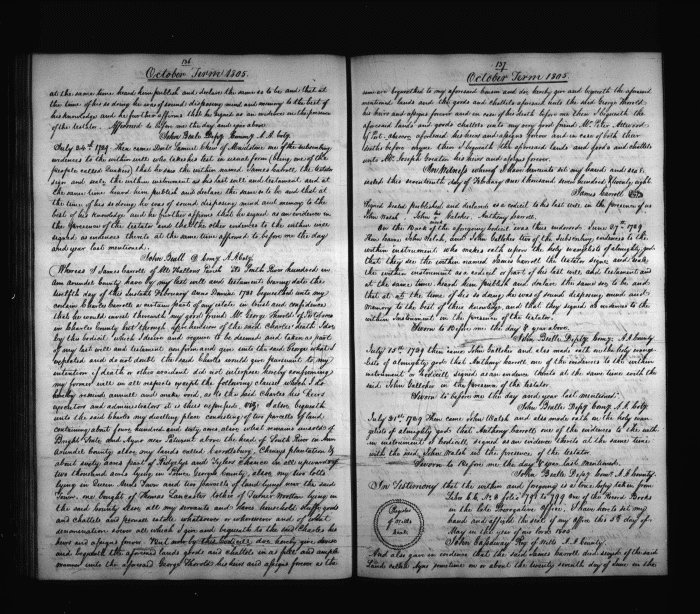 136
October Term 1805.
at the same time heard him publish and declare the same so to be and that at
the time of his so doing he was of sound disposing mind and memory to the best of
his knowledge and he further affirms that he signed as an evidence in the presence
of the testator. Affirmed to before me the day and year above
John Beale Depty Commy A A Coty
July 24th 1729. Then came Doctr Samuel Chew of Maidstone one of the subscribing
evidences to the within will who takes his test in usual form (being one of the
people called Quakers) that he saw the within named James Carroll the testator
sign and seal the within instrument as his last will and testament and at
the same time heard him publish and declare the same so to be and that at
the time of his so doing he was of sound disposing mind and memory to the
best of his knowledge and he further affirms that he signed as an evidence in
the presence of the testator and that the other evidences to the within will
signed as evidences thereto at the same time affirmed to before me the day
and year last mentioned.
John Beall D Comy A A Coty.
Whereas I James Carroll of All Hallows Parish South River hundred in
Ann Arundel County have by my last will and testament bearing date the
twelfth day of the instant February Anno Domini 1728 bequeathed unto my
cousin Charles Carroll a certain part of my estate in trust and confidence
that he would convey thereunto my good friend Mr. George Thorold of Portobacco
in Charles County but through apprehension of the said Charles' death I do
by this codicil which I desire and require to be deemed and taken as part
of my last will and testament confirm and give unto the said George what I
and do not doubt the said Charles would give pursuant to my
intention if death or other accident did not interpose hereby confirming
my former will in all respects except the following clause which I do
hereby rescind annull and make void, as to the said Charles his heirs
executors and administrators as there expressed. viz. I also bequeath
unto the said Charles my dwelling place consisting of two parcells of land
containing about four hundred and sixty acres, also what remains unsold of
Bright Seat and Ayno near Patuxent above the head of South River in Ann
Arundel County also my lands called Carrollsburg, Chews plantation &
about sixty acres part of Ridgelys and Tylors Chance in all upwards of
two thousand acres lying in Prince Georges County also my two lots
lying in Queen Anns Town and two parcells of land lying near the said
Town, one bought of Thomas Lancaster tother of Turner Wootton lying in
the said County also all my servants and slaves household stuff goods
and chattels and personal estate whatsoever or wheresoever and of what
denomination soever all which I give and bequeath to the said Charles his
heirs and assigns forever. But now by this codicil I do hereby give devise
and bequeath the aforesaid lands goods and chattels in as full and ample
manner unto the aforesaid George Thorold his heirs and assigns forever as the
137
October Term 1805.
same are bequeathed to my aforesaid cousin and do hereby give and bequeath the aforesaid
mentioned lands and the goods and chattels aforesaid unto the said George Thorold
his heirs and assigns forever and in case of his death before me then I bequeath the
aforesaid lands and goods chattels unto my very good friend Mr. Peter Attwood
of Port aforesaid his heirs and assigns forever and in case of both their
deaths before mine then I bequeath the aforesaid lands and goods and chattels
unto Mr. Joseph Greaton his heirs and assigns forever.
In Witness whereof I have hereunto set my hand and seal
dated this seventeenth day of February one thousand seven hundred & twenty eight
James Carroll
Signed sealed published and declared as a codicil to his last will in the presence of us
John Welsh. John Galloher. Anthony Carroll.
On the Back of the aforegoing codicil was thus endorsed June 27th 1729
then came John Welsh and John Galloher two of the subscribing evidences to the
within instrument who made oath upon the holy evangelists of almighty god
that they saw the within named James Carroll the testator sign and seal
the within instrument as a codicil or part of his last will and testament and
at the same time heard him publish and declare the same so to be and
that at the time of his so doing he was of sound disposing mind and
memory to the best of their knowledge and that they signed as evidences to the
within instrument in the presence of the testator.
Sworn to Before me the day & year above.
John Beale Depty Comy. A A County
July 15th 1729 then came John Galloher and also made oath on the holy evange-
lists of almighty god that Anthony Carroll one of the evidences to the within
instrument or codicil signed as an evidence thereto at the same time with the
said John Galloher in the presence of the testator
Sworn to before me the day and year last mentioned.
John Beale Depty Comy A A Coty
July 21st 1729 then came John Welsh and also made oath on the holy evan-
gelists of almighty god that Anthony Carroll one of the evidences to the with-
in instrument & codicil, signed as an evidence thereto at the same time
with the said John Welsh in the presence of the testator
Sworn to Before me the day & year last mentioned.
John Beale Depty Comy A A County.
In Testimony that the within and foregoing is a true copy taken from
Liber C C No. 3 folio 797 to 799 one of the Record Books
in the late Prerogative Office. I have hereto set my
hand and affixed the seal of my office this 8th day of
May in the year of our Lord 1805
John Gassaway Reg of Wills A A County.
Register
of Wills
Seal
And also gave in evidence that the said James Carroll died seized of the said
Land called Ayno sometime on or about the twenty seventh day of June in the